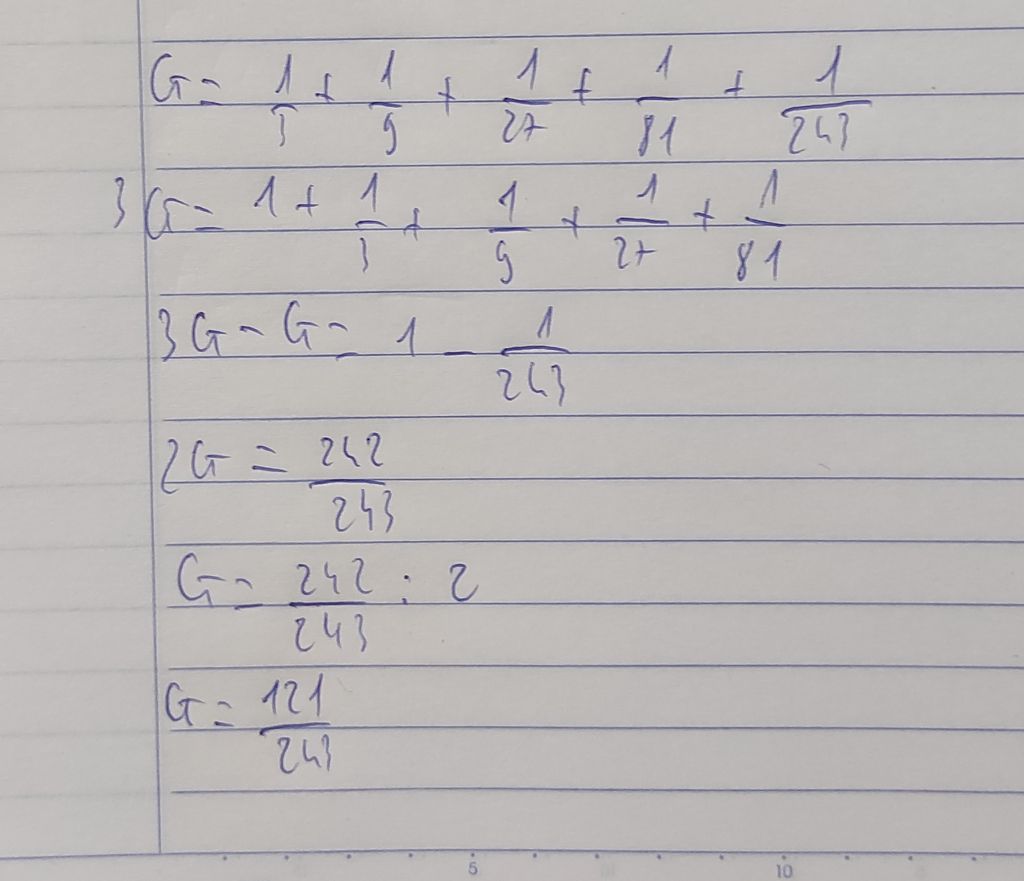 G = 1/3 + 1/9 + 1/27 + 1/81 + 1/243
3G = 1 + 1/3 + 1/9 + 1/27 + 1/81
3G - G = 1 - 1/243
2G = 242/243
G = 242/243 : 2
G = 121/243
5 10